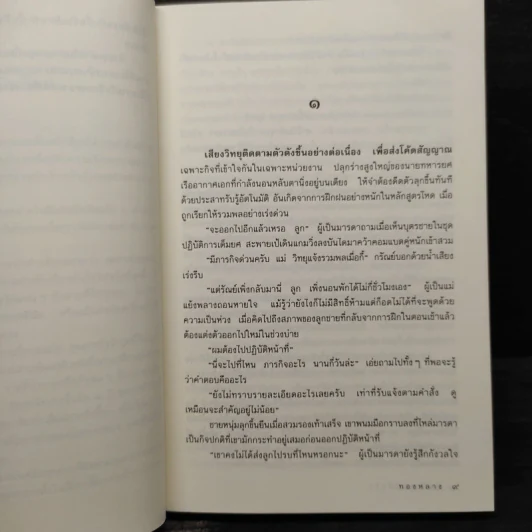 ๑
เสียงวิทยุติดตามตัวดังขึ้นอย่างต่อเนื่อง เพื่อส่งโค้ดสัญญาณ
เฉพาะกิจที่เข้าใจกันในเฉพาะหน่วยงาน ปลุกร่างสูงใหญ่ของนายทหารยศ
เรืออากาศเอกที่กำลังนอนหลับตานิ่งอยู่บนเตียง ให้จำต้องดีดตัวลุกขึ้นทันที
ด้วยประสาทรับรู้อัตโนมัติ อันเกิดจากการฝึกฝนอย่างหนักในหลักสูตรโหด เมื่อ
ถูกเรียกให้รวมพลอย่างเร่งด่วน
“จะออกไปอีกแล้วเหรอ ลูก” ผู้เป็นมารดาถามเมื่อเห็นบุตรชายในชุด
ปฏิบัติการเต็มยศ สะพายเป้เดินแกมวิ่งลงบันไดมาคว้าคอมแบตคู่หนักเข้าสวม
“มีภารกิจด่วนครับ แม่ วิทยุแจ้งรวมพลเมื่อกี้” กรัณย์บอกด้วยน้ำเสียง
เร่งรีบ
“แต่รัณย์เพิ่งกลับมานี่ ลูก เพิ่งนอนพักได้ไม่กี่ชั่วโมงเอง” ผู้เป็นแม่
แย้งพลางถอนหายใจ แม้รู้ว่ายังไงก็ไม่มีสิทธิ์ห้ามแต่ก็อดไม่ได้ที่จะพูดด้วย
ความเป็นห่วง เมื่อคิดไปถึงสภาพของลูกชายที่กลับจากการฝึกในตอนเช้าแล้ว
ต้องแต่งตัวออกไปใหม่ในช่วงบ่าย
“ผมต้องไปปฏิบัติหน้าที่”
“นี่จะไปที่ไหน ภารกิจอะไร นานกี่วันล่ะ” เอ่ยถามไปทั้งๆ ที่พอจะรู้
ว่าคำตอบคืออะไร
“ยังไม่ทราบรายละเอียดอะไรเลยครับ เท่าที่รับแจ้งตามคำสั่ง ดู
เหมือนจะสำคัญอยู่ไม่น้อย”
ชายหนุ่มลุกขึ้นยืนเมื่อสวมรองเท้าเสร็จ เขาพนมมือกราบลงที่ไหล่มารดา
เป็นกิจปกติที่เขามักกระทำอยู่เสมอก่อนออกปฏิบัติหน้าที่
“เขาคงไม่ได้ส่งลูกไปรบที่ไหนหรอกนะ” ผู้เป็นมารดายังรู้สึกกังวลใจ
ทองหลาง ๙